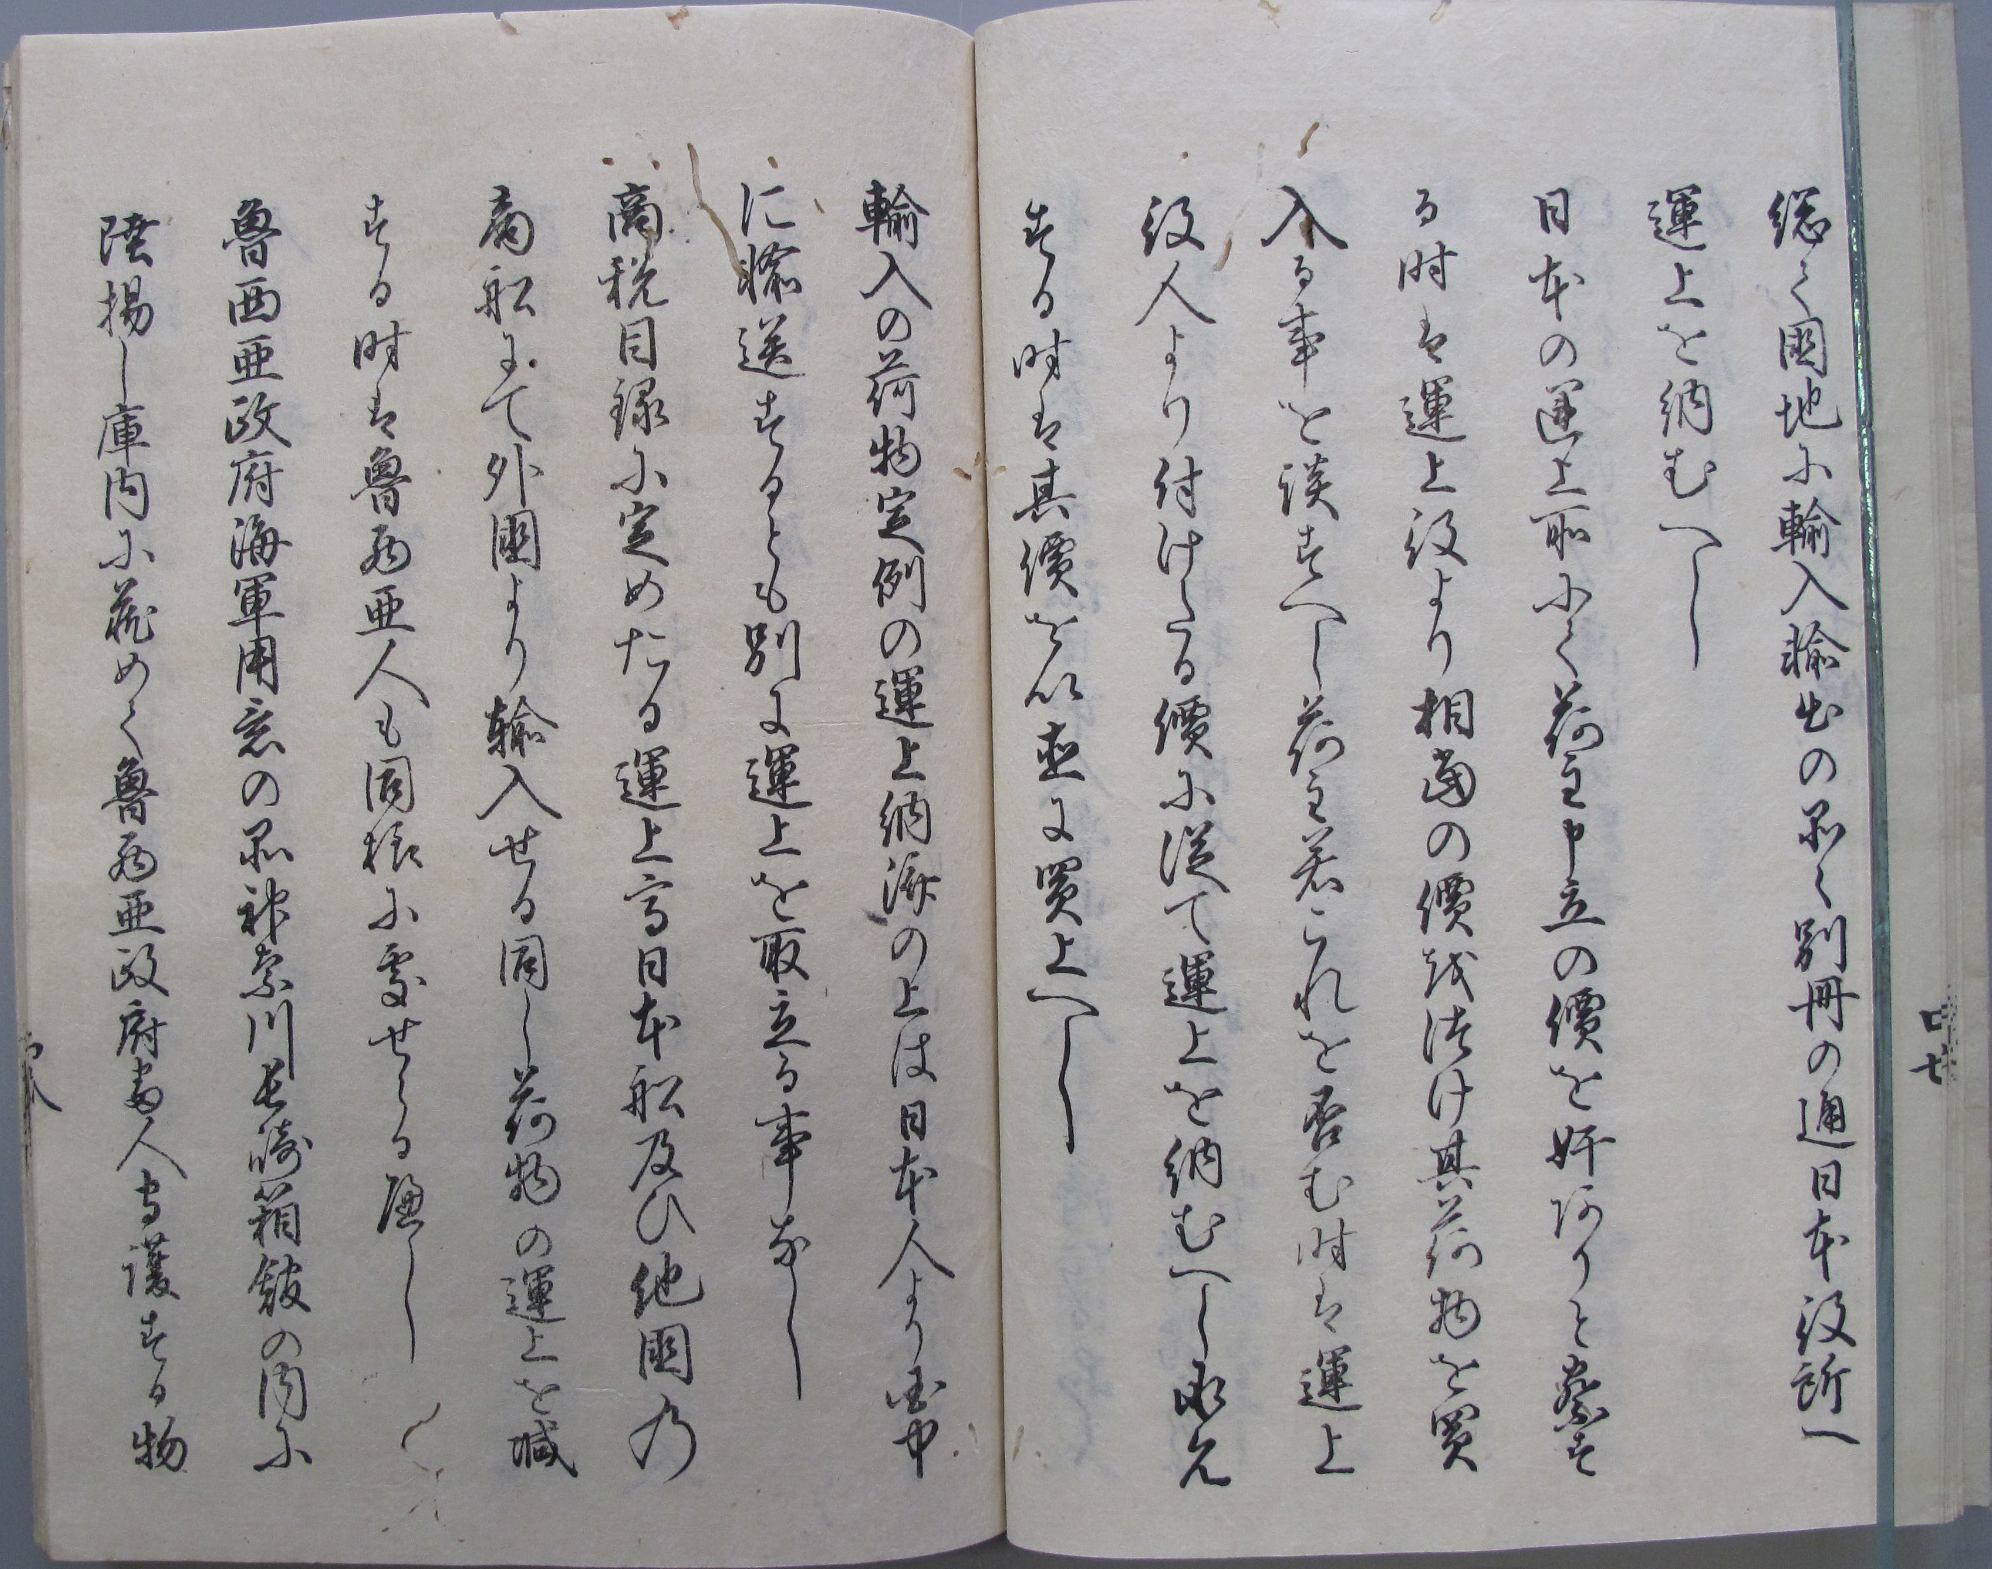 総て国地に輸入輸出の品々別冊の通日本役所へ
運上を納むへし
日本の運上所にて荷主申立の價を奸ありと察す
る時は運上役より相當の價を付け其荷物を買
入る事を談すへし荷主若これを否む時は運上
役人より付けたる價に従て運上を納むへし承允
する時は其價を以直に買上へし
輸入の荷物定例の運上納済の上は日本人より国中
に輸送するとも別に運上を取立る事なし
商税目録に定めたる運上高日本船及ひ他国の
商船にて外国より輸入せる同し荷物の運上を減
する時は魯西亜人も同様に處せらる遍し
魯西亜政府海軍用意の品神奈川長崎箱館の内に
陸揚し庫内に蔵めて魯西亜政府番人守護する物
四十七